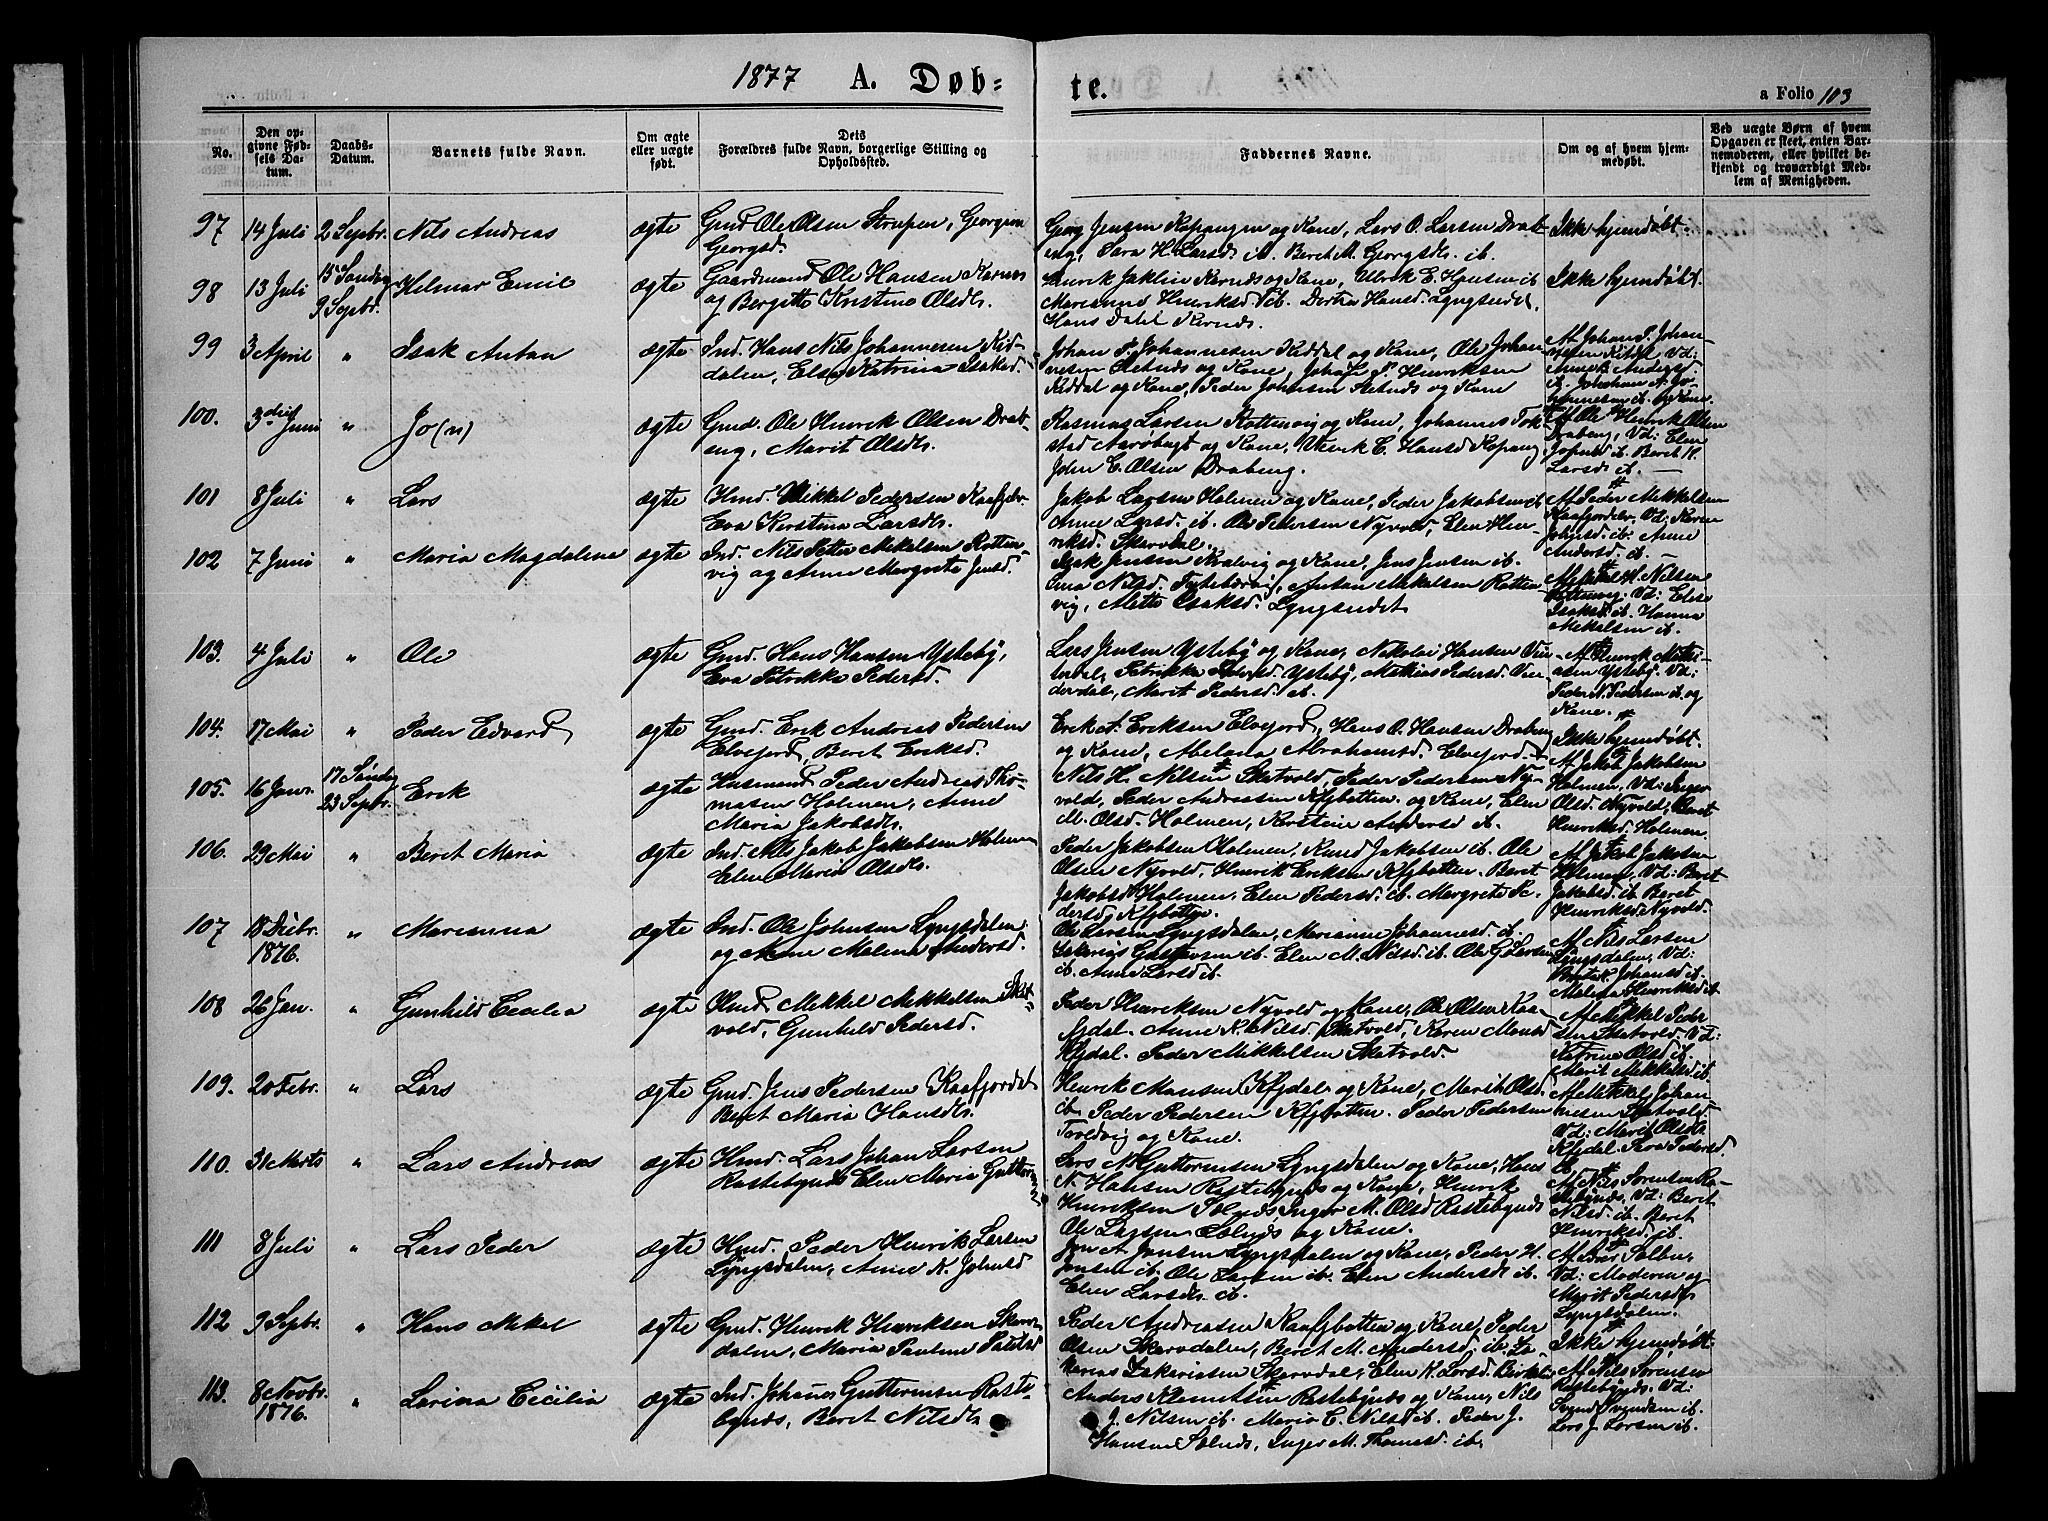 1877 A. Døb-
te.
a Folio 103
No.
Den op-
givne Fød-
sels Da-
tum.
Daabs-
Datum.
Barnets fulde Navn.
Om ægte
eller uægte
født.
Dets
Forældres fulde Navn, borgerlige Stilling og
Opholdssted.
Faddernes Navne.
Om og af hvem hjem-
medøbt.
Ved uægte Børn af hvem
Opgaven er skeet, enten Bar-
nemoderen, eller hvilket be-
kjendt og troværdigt Med-
lem af Menigheden.
97 14 Juli 2 Septbr. Nils Andreas ægte Gmd Ole Olsen Strupen, Georgine
Georgsd.
Georg Jensen Kopangen og Kone, Lars O. Larsen Drab-
eng, Sara H. Larsdr. ib. Beret M. Georgsdr. ib.
Ikke hjemdøbt.
98 13 Juli 15 Søndag
9 Septbr. Hilmar Emil ægte Gaardmand Ole Hansen Karnes
og Bergitte Kristine Olsdr.
Henrik Jaklin Karnes og Kone, Ulrik E. Hansen ib
Marianne Henriksd ib. Dorthea Hansd. Lyngseidet,
Hans Dalel Kernes.
Ikke hjemdøbt.
99 3 April " Isak Antan ægte Ind. Hans Nils Johannesen Kid-
dalen, Else Katrina Isaksd.
Johan P. Johannesen Kiddal og Kone, Ole Johan-
nesen
Kiddal og Kone, Peder Johnsen og Kone
Af Johan P. Johan-
nesen Kiddal. Vd:
Andersd
ib. Johannes
ib. og Kone.
100. 3die Juni " Jo(n) ægte Gmd. Ole Henrik Olsen Drab-
eng, Marit Olsdr.
Rasmus Larsen Rottenvig og Kone, Johannes
og Kone, Ulrik C. Hansd Kopang
John E. Olsen Drabeng.
Af Ole Henrik Olsen
Drabeng, Vd: Elen
ib. Beret K.
Larsdr ib.
101 8 Juli " Lars ægte Hmd. Mikkel Pedersen Kaafjdr.
Eva Kirstina Larsdr.
Jakob Larsen Holmen og Kone, Peder Jakobsen ib.
Anne Larsd. ib. Ole Pedersen Nyvold, Elen Hen-
riksd. Skarvdal.
Af Peder Mikkelsen
Kaafjordalen. Vd: Karen
ib. Anne
Andersd. ib.
102 7 Juni " Maria Magdalena ægte Ind. Nils Petter Mikalsen Rotten-
vig og Anne Margrete Jensd.
Isak Jensen Kvalvig og Kone, Jens Jensen ib.
Nilsd. Antan Mikalsen Rotten-
vig, Mette Isaksd. Lyngseidet
Af H. Nilsen
Rottenvig. Vd: Else
Isaksd ib. Hanna
Mikalsen ib.
103. 4 Juli " Ole ægte Gmd. Hans Hansen Ysteby,
Eva Petrikke Pedersd.
Lars Jensen Ysteby og Kone, Nikolai Hansen Vin-
terdal, Petrikke Pedersd. Ysteby, Mathias Pedersd. Vin-
terdal, Marit Pedersd. ib.
Af Henrik Mathi-
asen Ysteby. Vd:
Peder N. Pedersen ib. og
Kone.
104. 17 Mai " Peder Edvard ægte Gmd. Erik Andreas Pedersen
Elvejord, Beret Eriksd.
Erik A. Eriksen Elvejord, Hans O. Hansen Drabeng
og Kone, Abelona Abrahamsd. Elvejord.
Ikke hjemdøbt.
105. 16 Janr. 17 Søndag
23 Septbr. Erik ægte Husmand Peder Andreas Tho-
masen Holmen, Anne
Maria Jakobsdr.
Nils H. Nilsen Skatvold, Peder Pedersen Ny-
vold, Peder Andreassen Kfjbotten og Kone, Elen
M. Olsd. Holmen, Kirstine Andersd ib.
Af Jakob Jakobsen
Holmen, Vd: Inger
Olsd. Nyvold, Beret
Henriksd. Holmen.
106. 29 Mai " Beret Maria ægte Ind. Jakob Jakobsen Holmen
Elen Maria Olsdr.
Peder Jakobsen Holmen, Knud Jakobsen ib. Ole
Olsen Nyvold, Henrik Eriksen Kfjbotten. Beret
Jakobsd. Holmen, Elen Pedersd. ib. Margrete Pe-
dersd. Kfjbotten.
Af Jakob Jakobsen
Holmen, Vd: Beret
Jakobsd. ib Beret
Henriksd. Nyvold.
107 18 Dcbr.
1876. " Marianna ægte Ind. Ole Johnsen Lyngsdalen
og Anne Malena Andersd.
Ole Larsen Lyngsdalen, Marianne Johannesd. ib.
Zakarias Gustavsen ib. Elen M. Nilsd. ib. Ole G. Larsen
ib. Anne Larsd ib.
Af Nils Larsen
Lyngsdalen, Vd:
Johansd ib.
Malena Henriksd ib.
108 26 Jan. " Gunhild Cecilia ægte Gmd Mikkel Mikkelsen Skat-
vold, Gunhild Pedersd.
Peder Henriksen Nyvold og Kone, Ole Olsen Kaa-
fjdal. Anne K. Nilsd. Skatvold, Karen Monsd
Kfjdal. Peder Mikkelsen Skatvold.
Af Mikkel Peder-
sen Skatvold. Vd:
Katrine Olsd ib.
Marit Mikkelsd ib.
109. 20 Febr. " Lars ægte Gmd. Jens Pedersen Kaafjordal
Beret Maria Hansdr.
Henrik Hansen Kfjdal og Kone, Marit Olsd.
ib. Peder Pedersen Kfjbotten. Peder Pedersen
Toreldvig og Kone.
Af Mikkel Johan-
nesen Skatvold
Vd: Marit Olsdr.
Kfjdal. Eva Pedersd.
ib
110. 31 Marts " Lars Andreas ægte Hmd. Lars Johan Larsen
Rastebynes Elen Maria Guttorms
Lars N. Guttormsen Lyngsdalen og Kone, Hans
N. Hansen Rastebynds og Kone, Henrik
Henriksen Solnds Inger M. Olsd Rastebynds
Ole Larsen Solnds og Kone.
Af Nils Sørensen Ra-
stebynds, Vd: Beret
Nilsd ib. Beret
Henriksd. ib.
111 8 Juli " Lars Peder ægte Hmd. Peder Henrik Larsen
Lyngsdalen, Anne K. Johnsd
Jon A. Jonsen Lyngsdalen og Kone, Peder H.
Jonsen ib. Ole Larsen ib. Elen Andersdr ib.
Elen Larsdr. ib.
Af
Vd: Moderen og
Marit Pedersdr.
Lyngsdalen.
112 9 Septbr. " Hans Mikal ægte Gmd. Henrik Henriksen Skarv-
dalen, Maria Pauline
Peder Andreasen Kaafjbotten og Kone, Peder
Olsen Skarvdalen, Beret M. Andersd. ib. Za-
karias Zakariasen Skarvdal, Elen K. Larsd.
Ikke hjemdøbt
113. 8 Novbr.
1876. " Larina Cecilia ægte Ind. Johan Guttormsen Raste-
bynds, Beret Nilsdr.
Anders Klemetsen Rastebynds og Kone, Nils
J. Nilsen ib. Maria C. Nilsd ib. Peder J.
Hansen Solnds, Inger M. Thomasd. ib.
Af Nils Sørensen
Rastebynds. Vd:
ib
Lars J. Larsen ib.